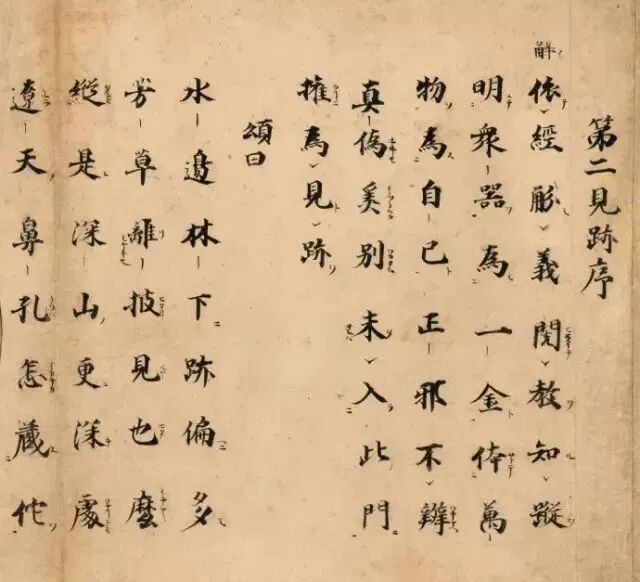 第二見跡序
解
依經觧義閱教知蹤
明衆器為一金体萬
物為自己正邪不辨
真偽奚別未入此門
権為見跡
頌曰
水邊林下跡偏多
芳草離披見也麼
縱是深山更深處
遼天鼻孔怎藏佗